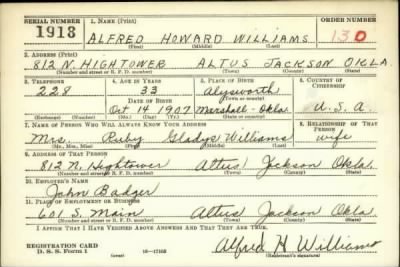 SERIAL NUMBER 1. NAME (Print) ORDER NUMBER
1918 ALFRED HOWARD WILLIAMS 130
(First) (Middle) (Last)
2. ADDRESS (Print)
812 N. HIGHTOWER ALTUS JACKSON OKLA.
(Number and street or R. F. D. number) (Town) (County) (State)
3. TELEPHONE 4. AGE IN YEARS 5. PLACE OF BIRTH 6. COUNTRY OF CITIZENSHIP
228 33 Alysworth
DATE OF BIRTH (Town or county)
Oct 14 1907 Marshall - Okla. U.S.A.
(Exchange) (Number) (Mo.) (Day) (Yr.) (State or country)
7. NAME OF PERSON WHO WILL ALWAYS KNOW YOUR ADDRESS 8. RELATIONSHIP OF THAT PERSON
Mrs. Ruby Gladys Williams wife
(Mr., Mrs., Miss) (First) (Middle) (Last)
9. ADDRESS OF THAT PERSON
812 N. Hightower Altus Jackson Okla.
(Number and street or R. F. D. number) (Town) (County) (State)
10. EMPLOYER'S NAME
John Badger
11. PLACE OF EMPLOYMENT OR BUSINESS
601 S. Main Altus Jackson Okla.
(Number and street or R. F. D. number) (Town) (County) (State)
I AFFIRM THAT I HAVE VERIFIED ABOVE ANSWERS AND THAT THEY ARE TRUE.
REGISTRATION CARD
D. S. S. Form 1 (over) 16—17105 Alfred H Williams
(Registrant's signature)